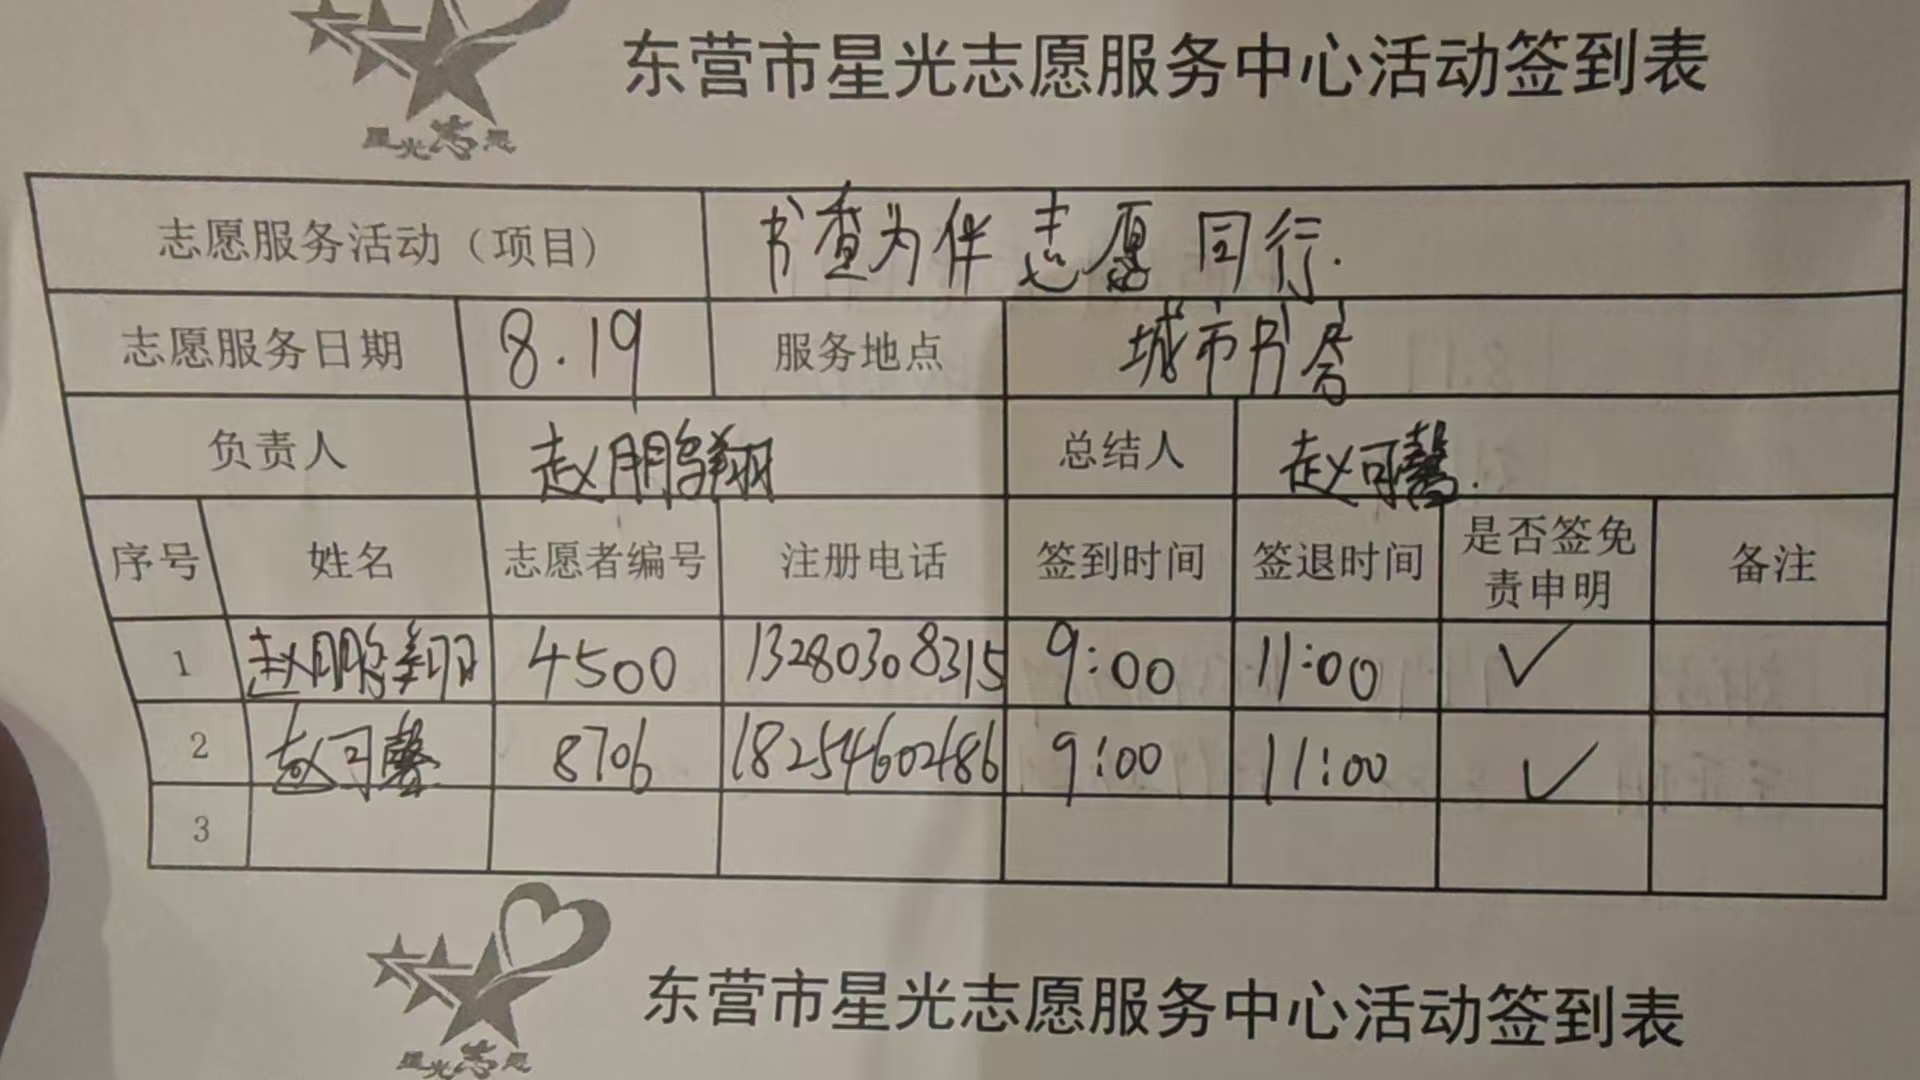 东营市星光志愿服务中心活动签到表
星光志愿
志愿服务活动（项目） 书查为伴 志愿 同行.
志愿服务日期 8.19 服务地点 城市书屋
负责人 赵鹏翔 总结人 赵可馨.
序号 姓名 志愿者编号 注册电话 签到时间 签退时间 是否签免责申明 备注
1 赵鹏翔 4500 13280308315 9:00 11:00 ✓
2 赵可馨 8706 18254602486 9:00 11:00 ✓
3
东营市星光志愿服务中心活动签到表
星光志愿